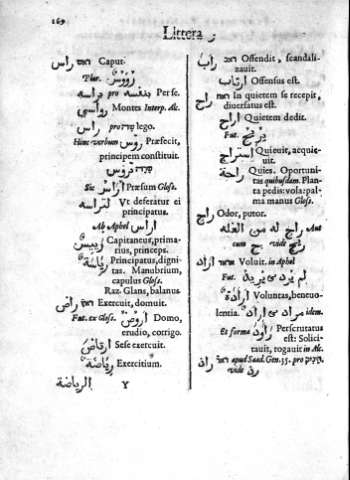 169
Littera ر
راس ראש Caput.
Plur. رووس
دراسه pro بنفسه Per se.
رواسي Montes Interp. Alc.
راس pro שרה lego.
Hinc verbum روس Præfecit,
principem constituit.
Sic اراس Præsum Gloss.
لتراسه Ut deferatur ei
principatus.
Ab Aphel اراس
رييس Capitaneus, prima-
rius, princeps.
رياسة Principatus, digni-
tas. Manubrium,
capulus Gloss.
Raz. Glans, balanus.
راض Exercuit, domuit.
Fut. ex Gloss. اروض Domo,
erudio, corrigo.
ارتاض Sese exercuit.
رياضة Exercitium.
الرياضة Y
راب Offendit, scandali-
zauit.
ارتاب Offensus est.
راح In quietem se recepit,
diuersatus est.
اراح Quietem dedit.
Fut.
استراح Quieuit, acquie-
uit.
راحة Quies. Oportuni-
tas quibusdam. Plan-
ta pedis: vola: pal-
ma manus Gloss.
راح Odor, putor.
راح له من الغله Aut
cum vide
اراد Voluit. in Aphel
Fut. يريد
ارادة Voluntas, beneuo-
lentia. مراد idem.
Et forma راود Perscrutatus
est: Solici-
tauit, rogauit in Alc.
ران apud Saad. Gen. 35. pro
vide